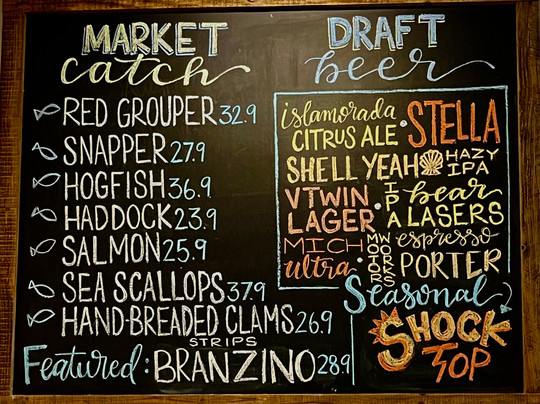 MARKET
catch
RED GROUPER 32.9
SNAPPER 27.9
HOGFISH 36.9
HADDOCK 23.9
SALMON 25.9
SEA SCALLOPS 37.9
HAND-BREADED CLAMS 26.9
STRIPS
Featured: BRANZINO 28.9
DRAFT
beer
islamorada
CITRUS ALE
STELLA
SHELL YEAH
HAZY
IPA
VTWIN
LAGER
IPA
bear
LASERS
MICH
ultra
MOTOR
WORKS
espresso
PORTER
Seasonal
SHOCK
TOP